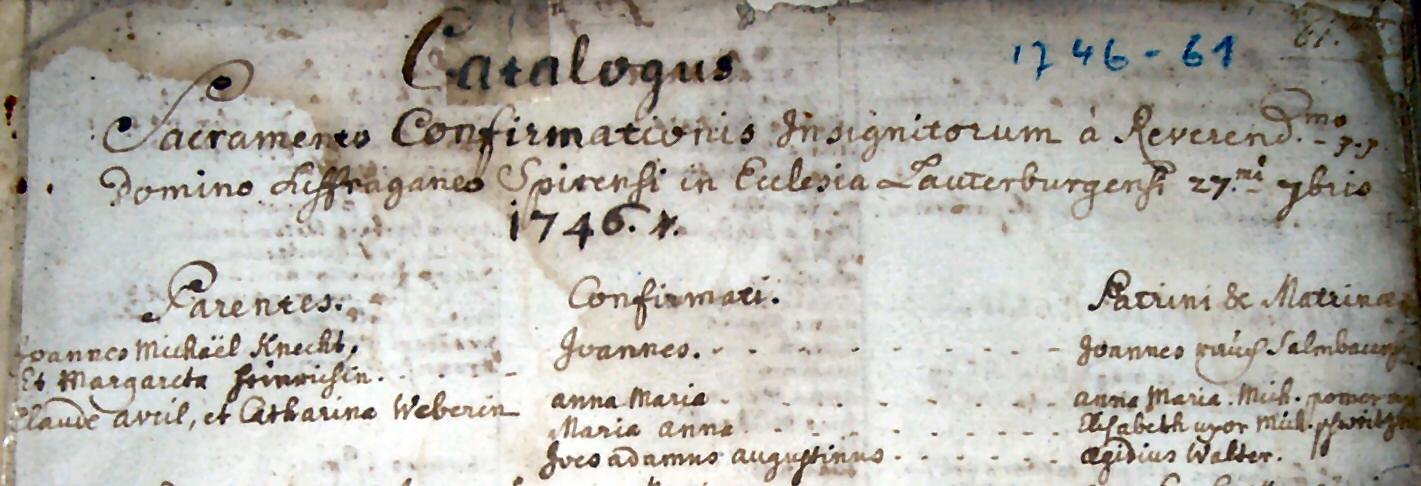 Catalogus
1746-61
61.
Sacramento Confirmationis Insignitorum à Reverend.mo
Domino Suffraganeo Spirensi in Ecclesia Lauterburgensi 27.mâ 7bris
1746.
Parentes. Confirmati. Patrini & Matrinae
Joannes Michaël Knecht, Joannes. Joannes
Et Margareta Heinrichin.
Claude avril, et Catharina Weberin anna Maria anna Maria Mich.
Maria anna Elisabeth uxor Mich.
Joes adamus augustinus ægidius Walter.